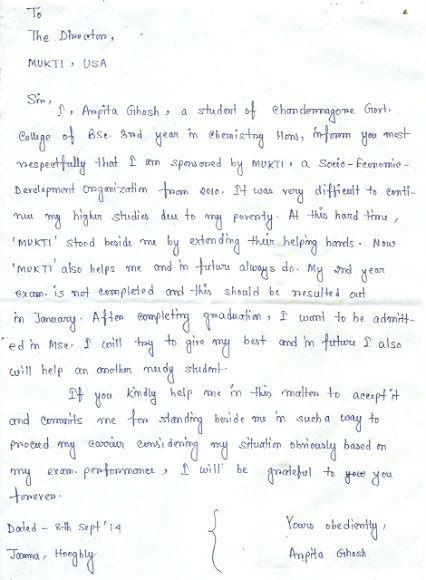 To
The Director,
MUKTI, USA
Sir,
I, Arpita Ghosh, a student of Chandernagore Govt.
College of BSc. 3rd year in Chemistry Hons, inform you most
respectfully that I am sponsored by MUKTI, a Socio-Economic-
Development Organization from 2010. It was very difficult to conti-
nue my higher studies due to my poverty. At this hard time,
'MUKTI' stood beside me by extending their helping hands. Now
'MUKTI' also helps me and in future always do. My 2nd year
exam. is not completed and this should be resulted out
in January. After completing graduation, I want to be admitt-
ed in MSc. I will try to give my best and in future I also
will help an another needy student.
If you kindly help me in this matter to accept it
and commits me for standing beside me in such a way to
proced my carrier considering my situation obviously based on
my exam. performance, I will be grateful to you
forever.
Dated - 8th Sept' 14
Yours obediently,
Jarura, Hooghly
Arpita Ghosh